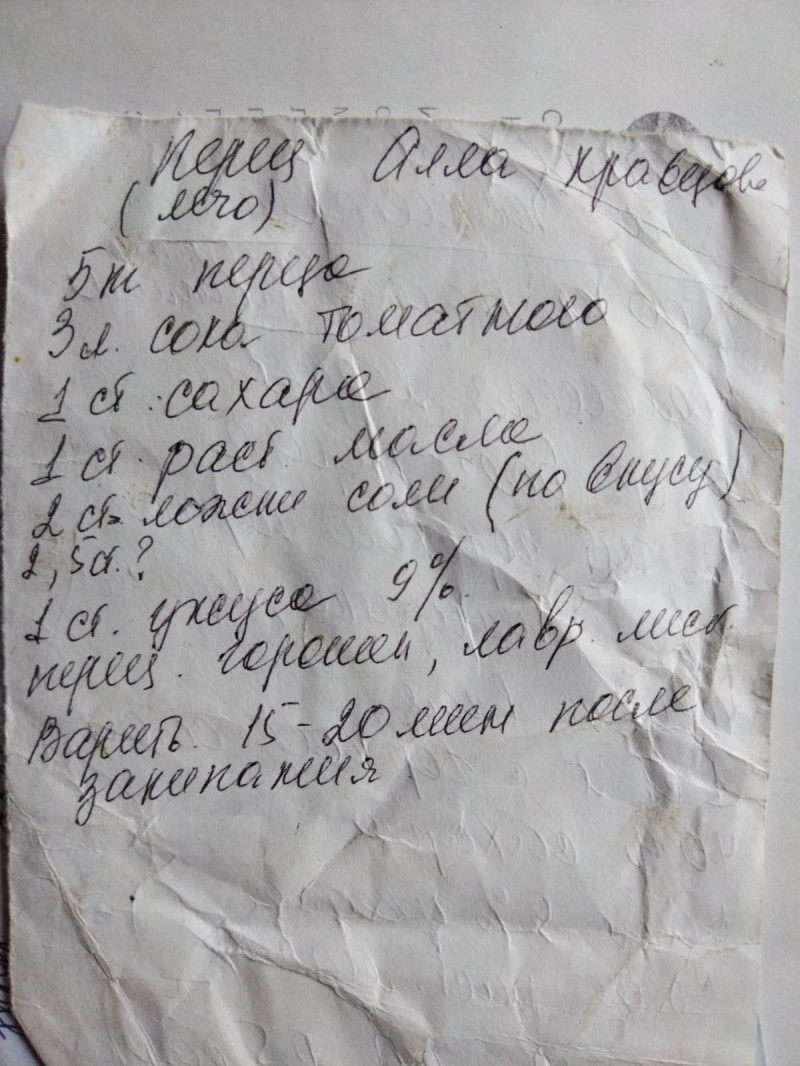 Перец Алла Кравцова
(лечо)
5 кг перца
3 л. сока томатного
1 ст. сахара
1 ст. раст. масла
2 ст. ложки соли (по вкусу)
2,5 ст.?
1 ст. уксуса 9%.
перец. горошек, лавр. лист.
Варить. 15-20 мин после
закипания